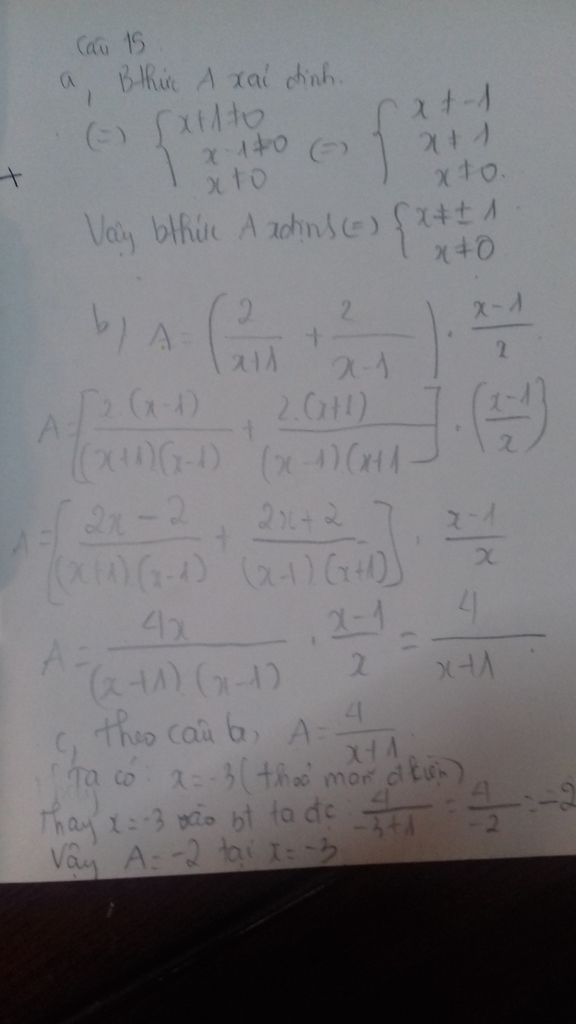 Câu 15
a, Bthức A xai định.
(=) { x+1≠0 x-1≠0 x≠0 (=) { x≠-1 x≠1 x≠0.
Vậy bthức A xđịnh (=) { x≠±1 x≠0
b) A = (2/(x+1) + 2/(x-1)) . (x-1)/x
A = [2.(x-1)/((x+1)(x-1)) + 2.(x+1)/((x-1)(x+1] . ((x-1)/x)
A = [(2x-2)/((x+1).(x-1)) + (2x+2)/((x-1)(x+1))] . (x-1)/x
A = 4x/((x+1).(x-1)) . (x-1)/x = 4/(x+1).
c, theo câu b, A = 4/(x+1)
Ta có: x=-3 (thoả mãn đkiện)
Thay x=-3 vào bt ta đc: 4/(-3+1) = 4/(-2) = -2
Vậy A=-2 tại x=-3